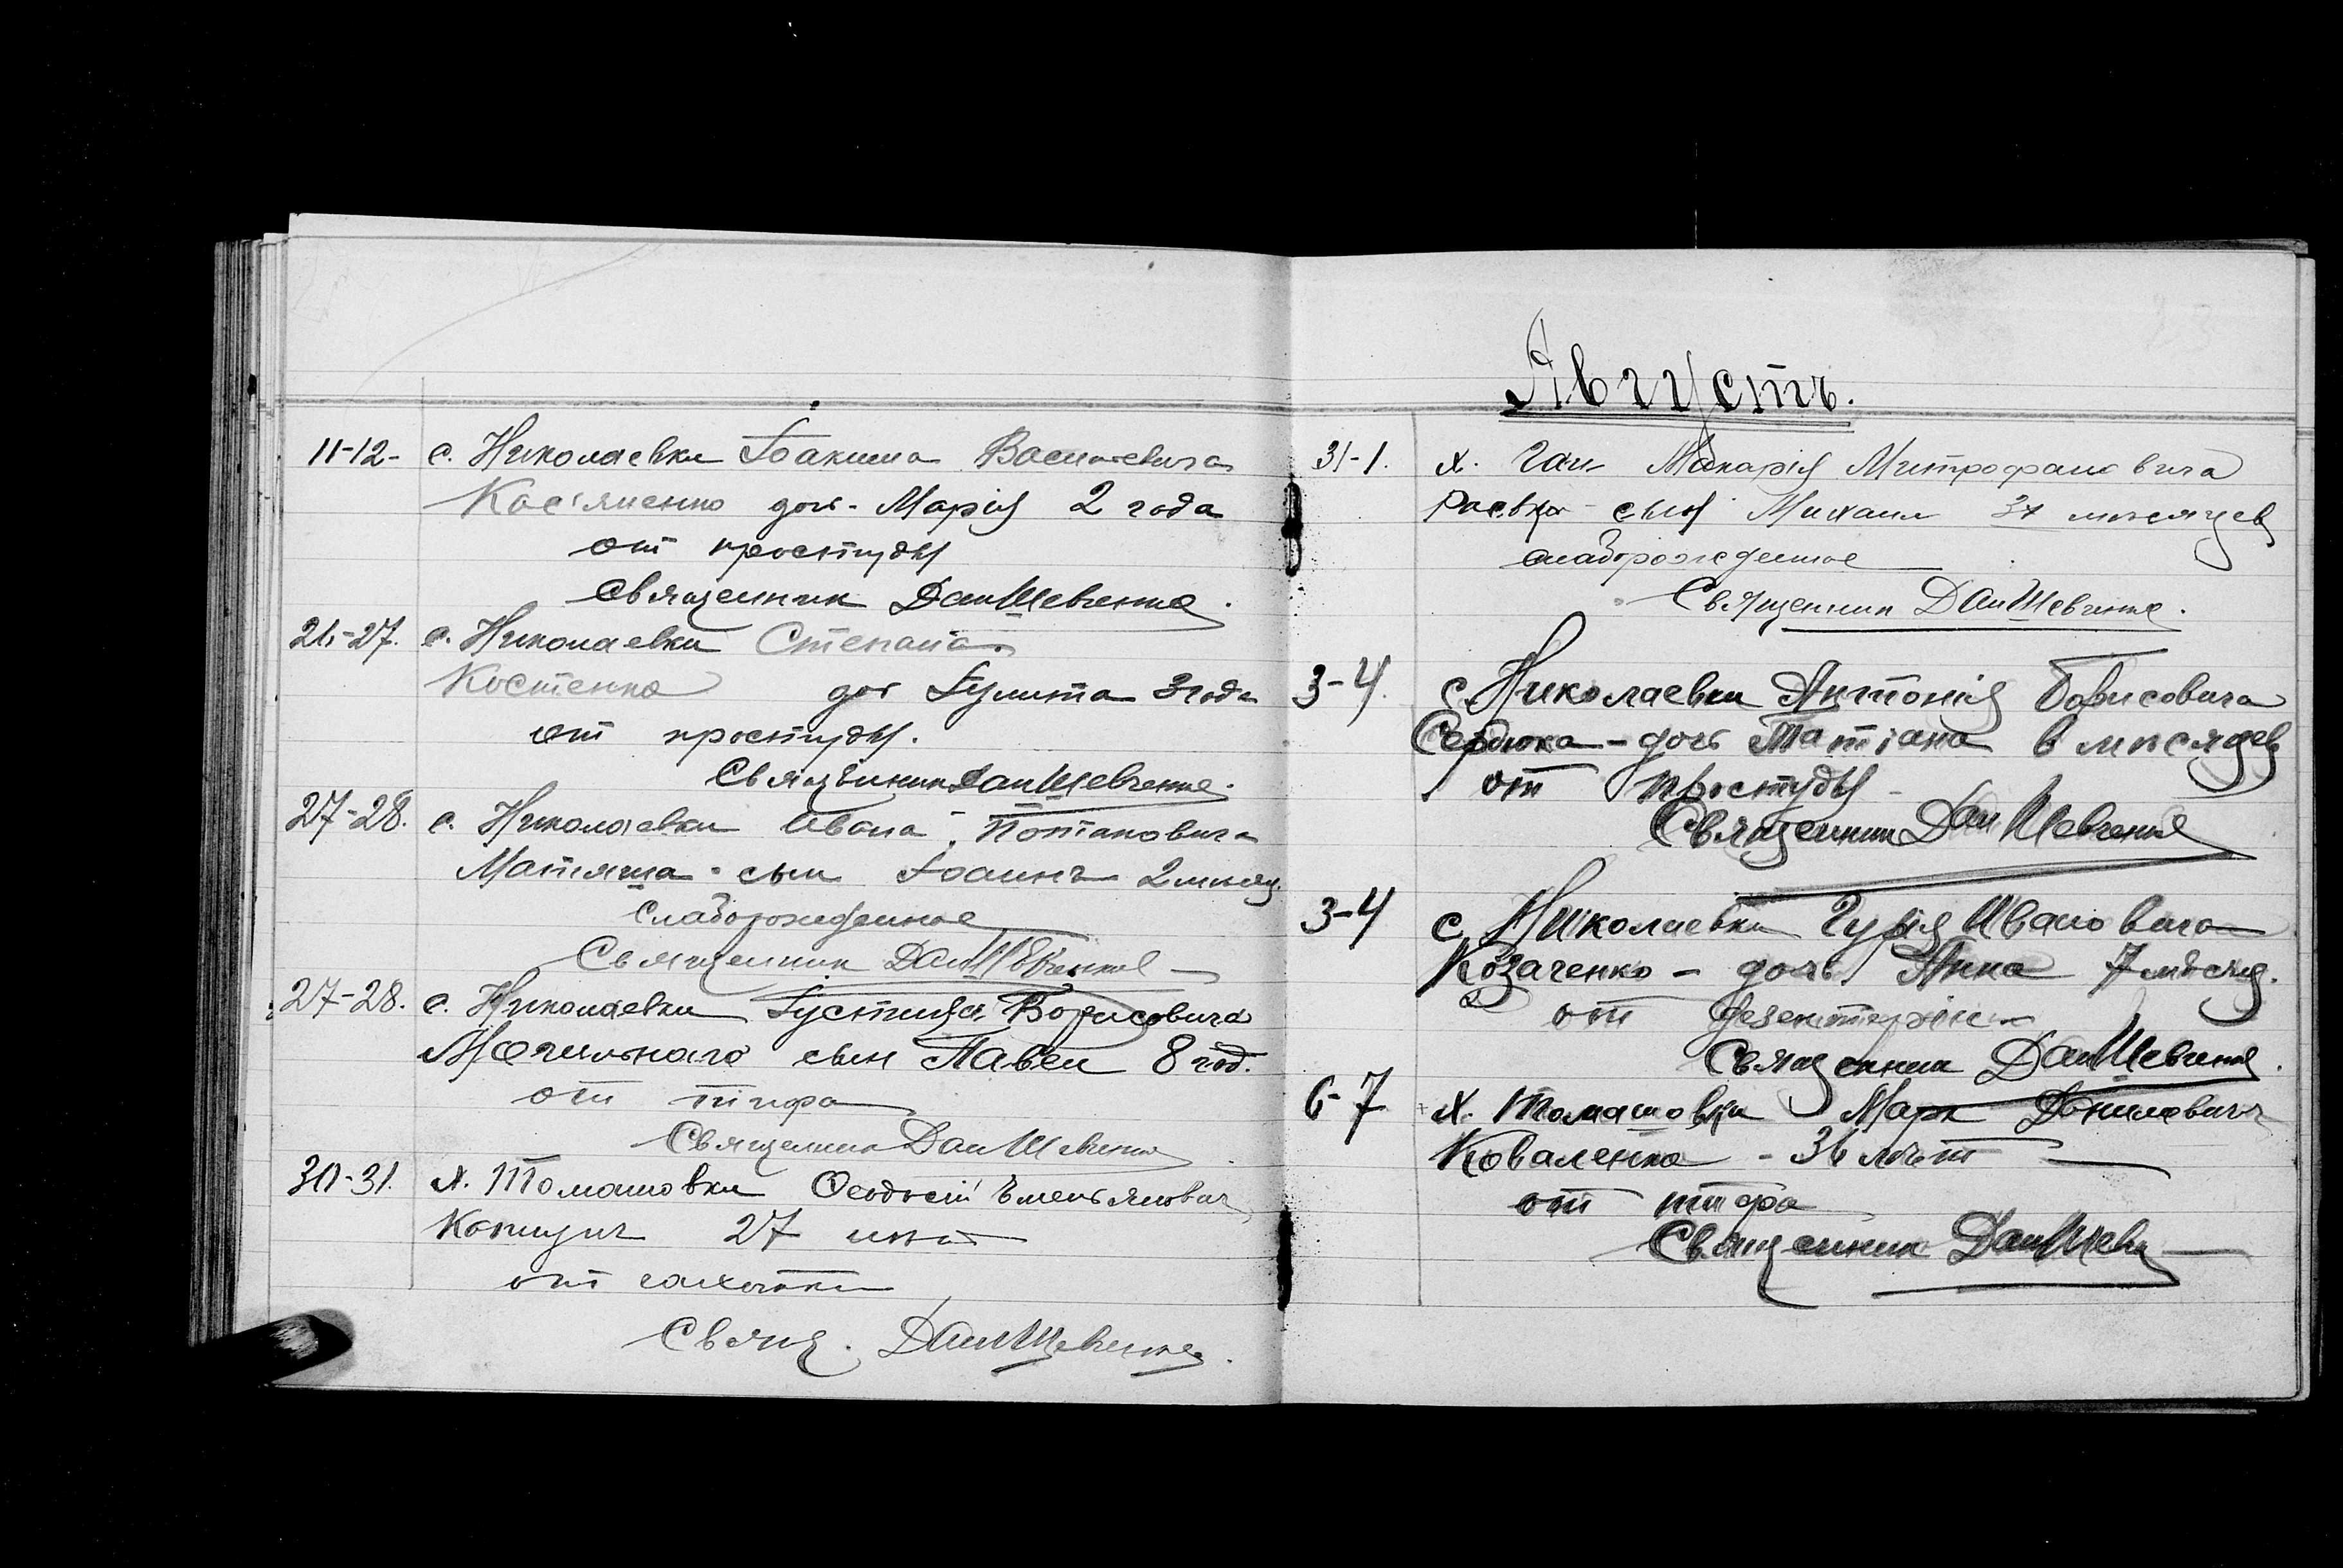 11-12- с. Николаевки Іоакима Васильевича
Касьяненко доч. Марія 2 года
от простуды
Священник Дан Шевченко.
26-27. с. Николаевки Степана
Костенко доч Іулита 3 года
от простуды.
Священник Дан Шевченко.
27-28. с. Николаевки Ивана Потаповича
Матяша - сын Іоаннъ 2 месяц.
слаборожденное
Священник Дан Шевченко
27-28. с. Николаевки Іустина Борисовича
Могильнаго сын Павел 8 год.
от тифа
Священник Дан Шевченко
30-31. х. Томашовки Ѳеодосій Емельянович
27 лет
от чахотки
Свящ. Дан Шевченко.
Августъ.
31-1. х. Ган Макарія Митрофановича
сын Михаил месяцев
слаборожденное
Священник Дан Шевченко.
3-4. с. Николаевки Антонія Борисовича
Сердюка - дочь Татіана 6 месяцев
от простуды
Священник Дан Шевченко
3-4 с. Николаевки Гурія Ивановича
Козаченко - дочь Анна 7 мѣсяц.
от дезентеріи
Священник Дан Шевченко.
6-7 х. Томашовки Марк Данилович
Коваленко - 36 лѣт
от тифа
Священник Дан Шевч